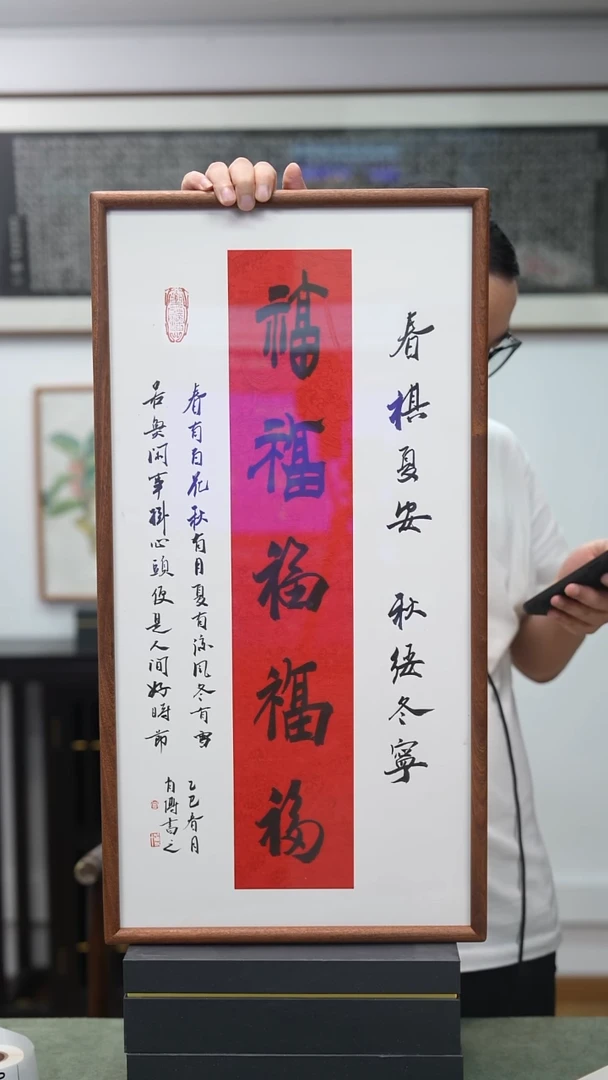 春祺夏安 秋绥冬寧
福福福福福
春有百花秋有月夏有凉风冬有雪
若無闲事掛心頭便是人间好時節
乙巳春月
书之